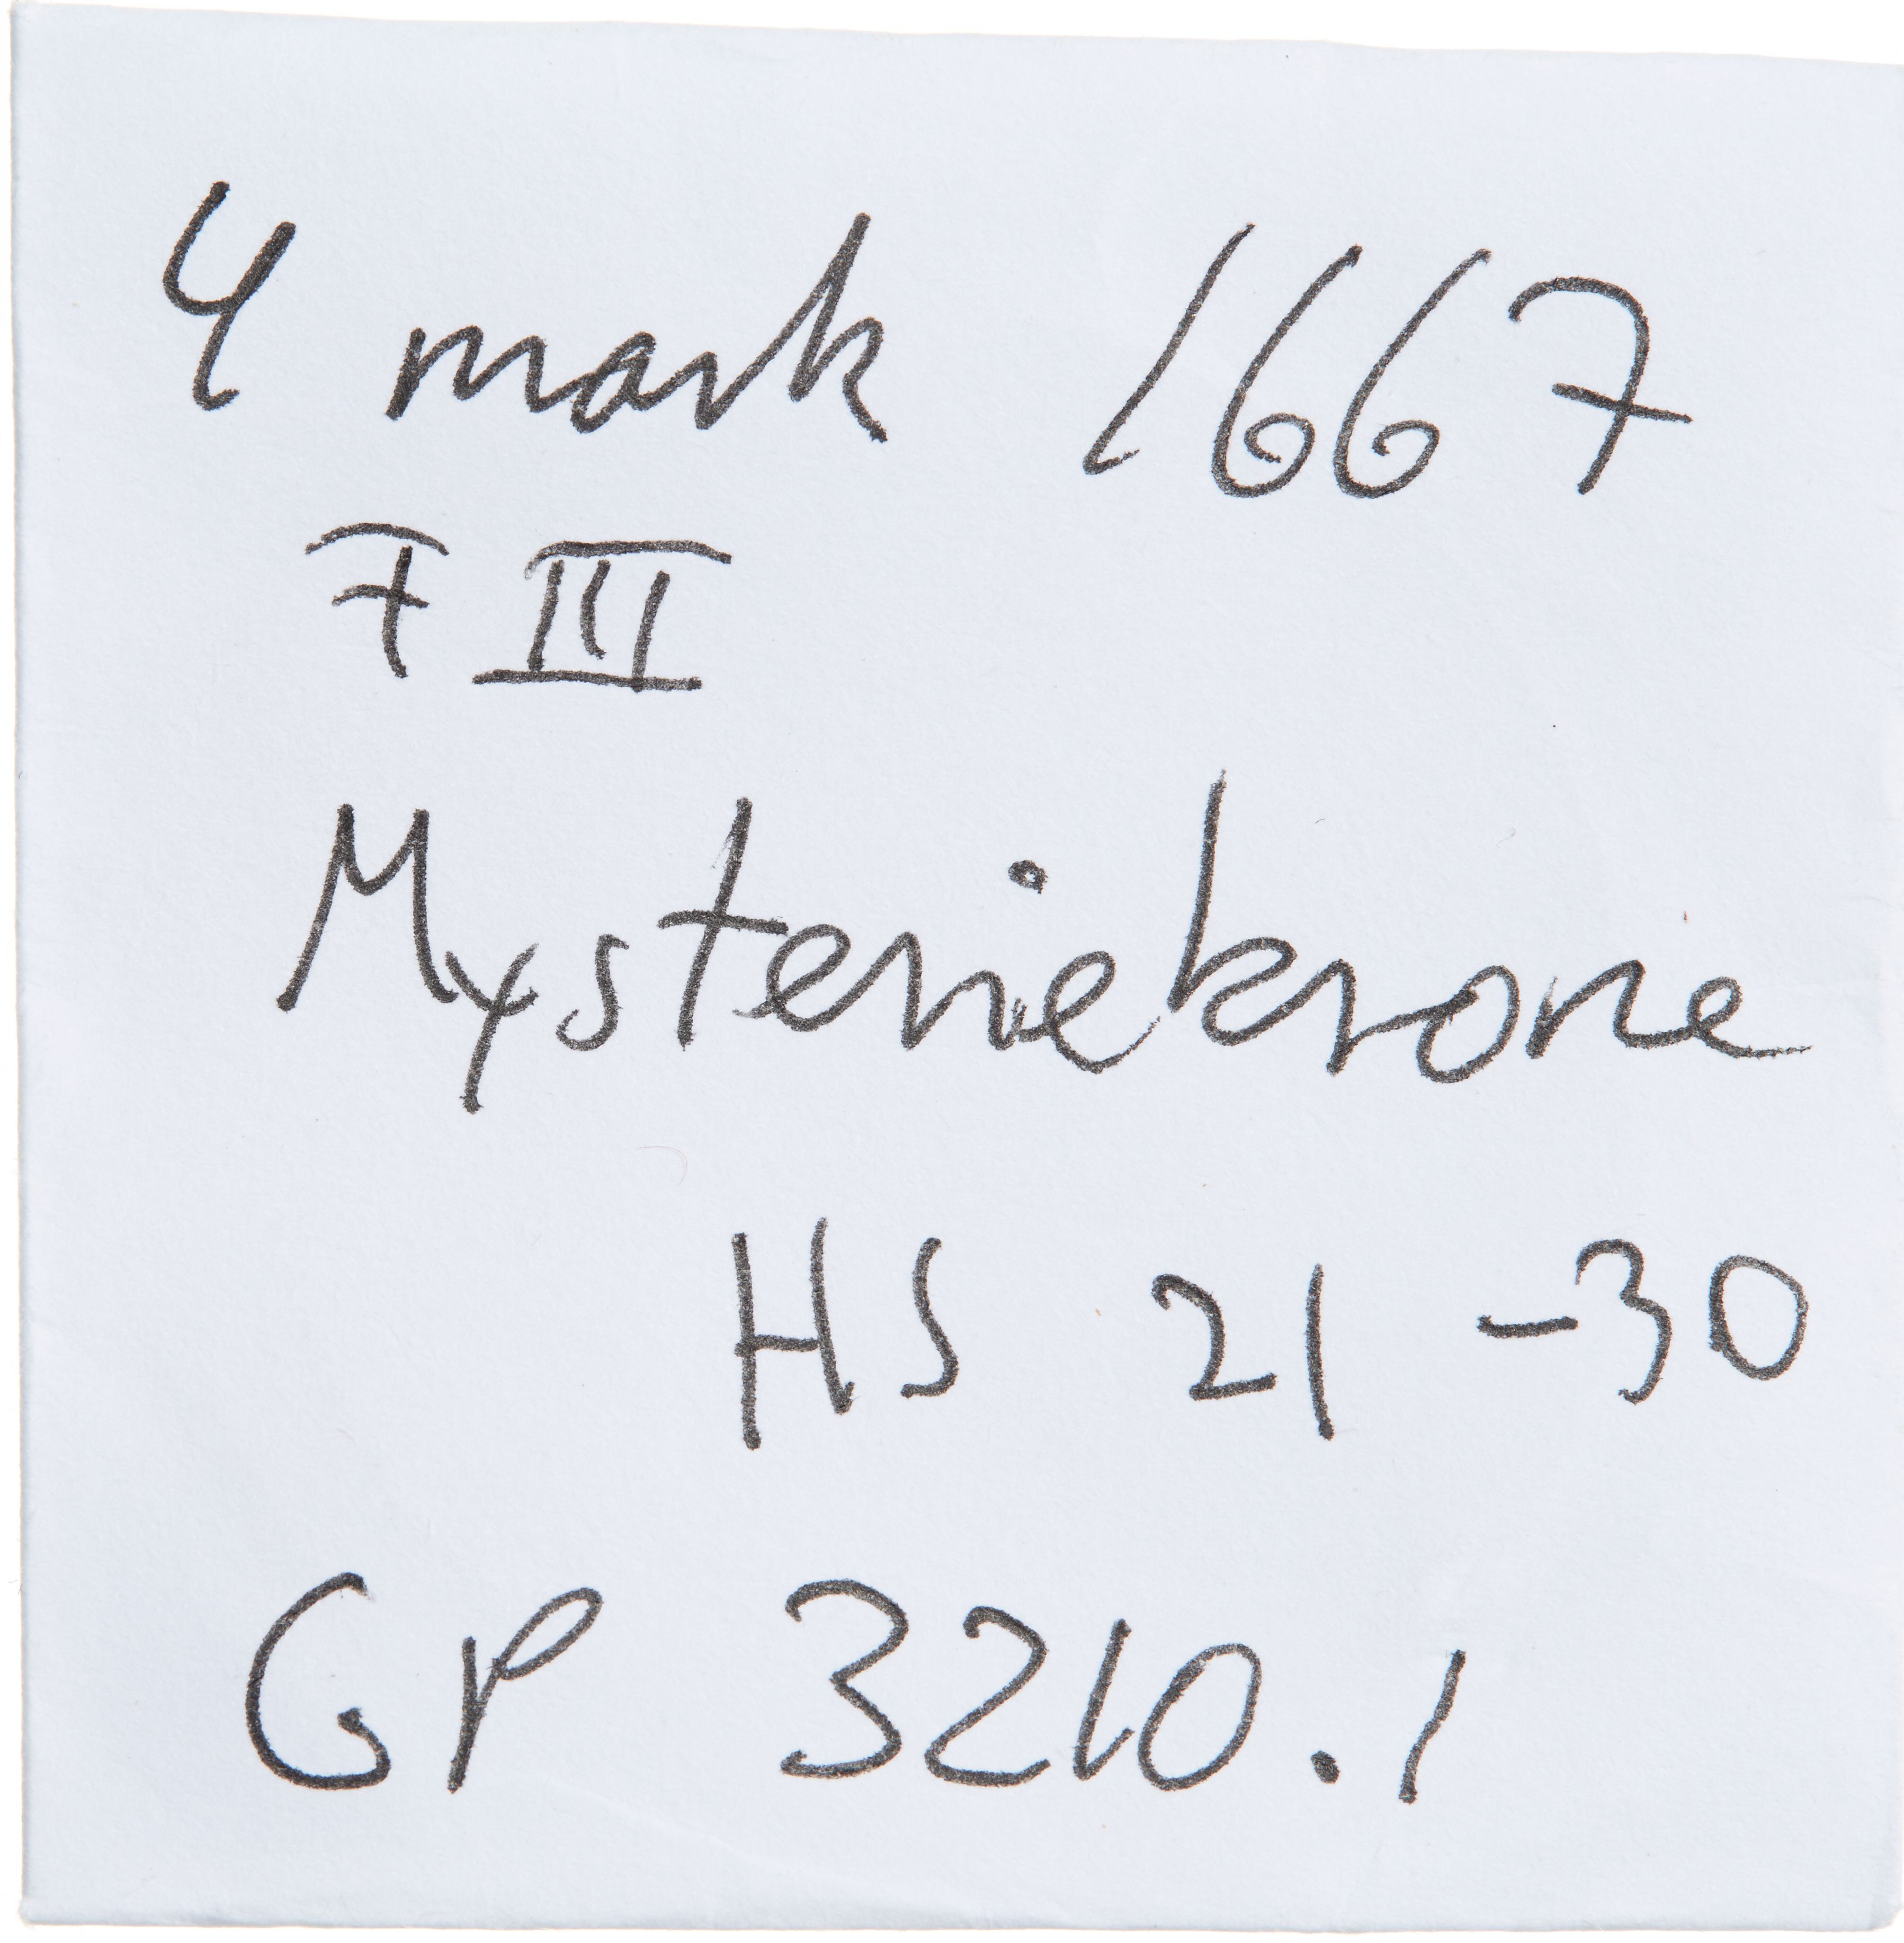 4 mark 1667
F III
Mysteriekrone
HS 21 -30
GP 3210.1